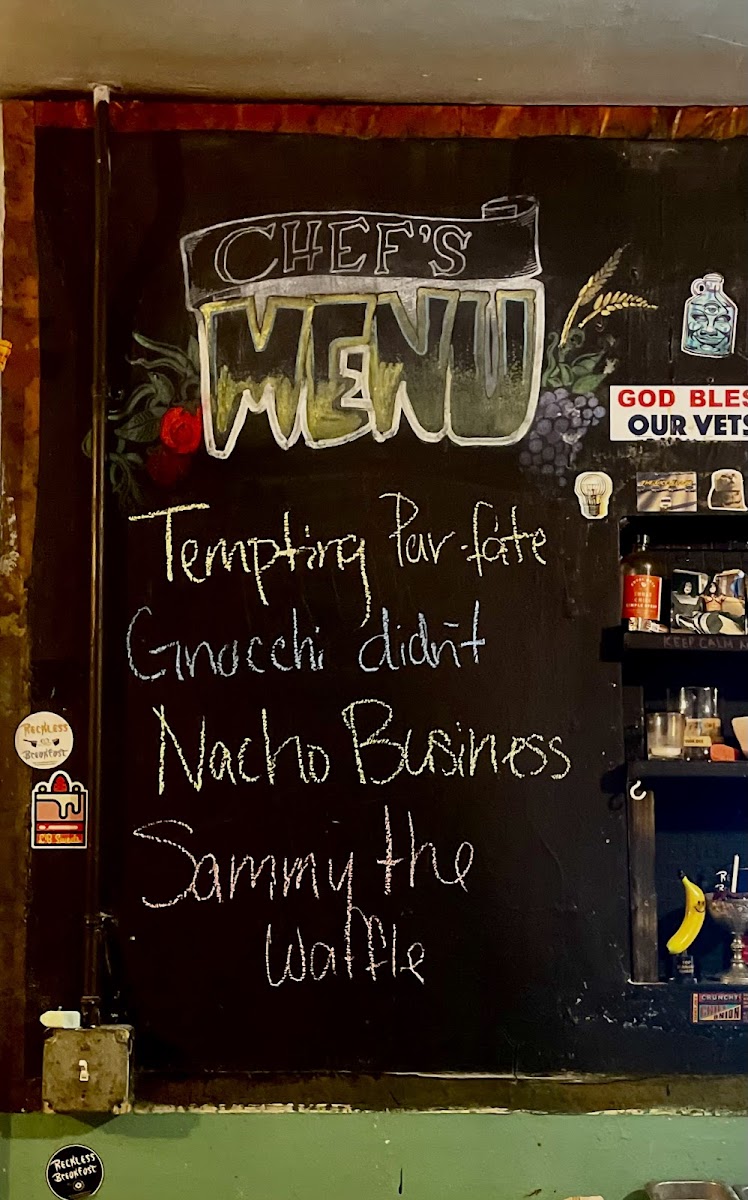 CHEF'S
MENU
GOD BLES
OUR VETS
Tempting Par-fate
Gnocchi didn't
Nacho Business
Sammy the
Waffle
KEEP CALM
RECKLESS
BREAKFAST
CRUNCHY
CHILI ONION
RECKLESS
BREAKFAST